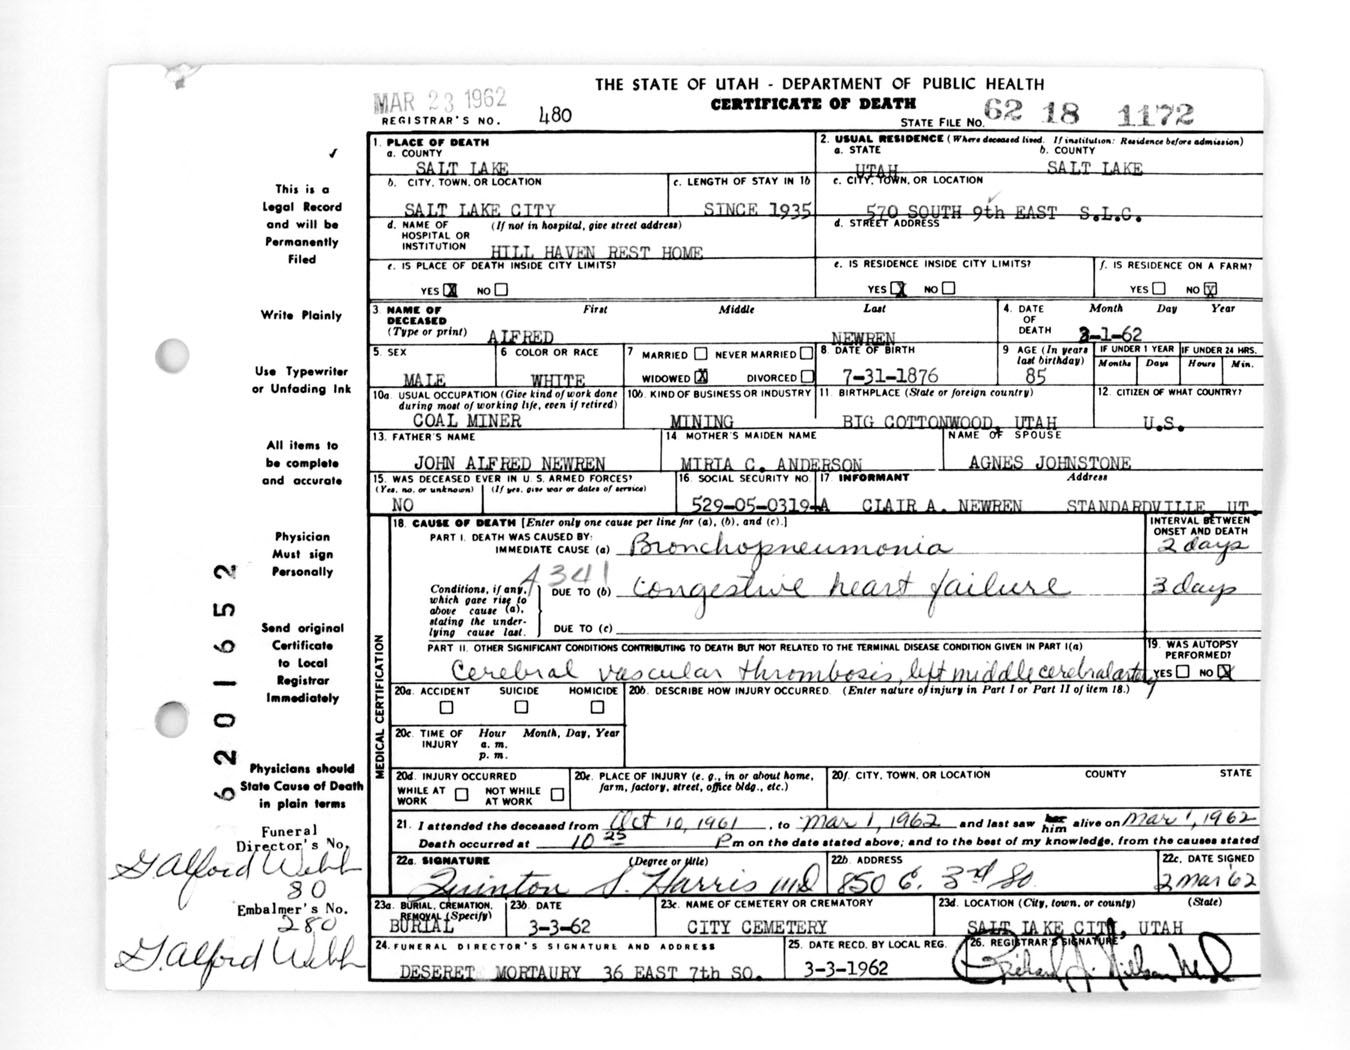 THE STATE OF UTAH - DEPARTMENT OF PUBLIC HEALTH
MAR 23 1962
CERTIFICATE OF DEATH
REGISTRAR'S NO. 480
STATE FILE NO. 62 18 1172
1. PLACE OF DEATH
a. COUNTY
SALT LAKE
2. USUAL RESIDENCE (Where deceased lived. If institution: Residence before admission)
a. STATE b. COUNTY
UTAH SALT LAKE
b. CITY, TOWN, OR LOCATION
SALT LAKE CITY
c. LENGTH OF STAY IN 1b
SINCE 1935
c. CITY, TOWN, OR LOCATION
570 SOUTH 9th EAST S.L.C.
d. NAME OF HOSPITAL OR INSTITUTION (If not in hospital, give street address)
HILL HAVEN REST HOME
d. STREET ADDRESS
e. IS PLACE OF DEATH INSIDE CITY LIMITS?
YES X NO
e. IS RESIDENCE INSIDE CITY LIMITS?
YES X NO
f. IS RESIDENCE ON A FARM?
YES NO X
3. NAME OF DECEASED (Type or print)
First Middle Last
ALFRED NEWREN
4. DATE OF DEATH
Month Day Year
3-1-62
5. SEX
MALE
6. COLOR OR RACE
WHITE
7 MARRIED NEVER MARRIED
WIDOWED X DIVORCED
8. DATE OF BIRTH
7-31-1876
9 AGE (In years last birthday)
85
IF UNDER 1 YEAR
Months Days
IF UNDER 24 HRS.
Hours Min.
10a. USUAL OCCUPATION (Give kind of work done during most of working life, even if retired)
COAL MINER
10b. KIND OF BUSINESS OR INDUSTRY
MINING
11. BIRTHPLACE (State or foreign country)
BIG COTTONWOOD, UTAH
12. CITIZEN OF WHAT COUNTRY?
U.S.
13. FATHER'S NAME
JOHN ALFRED NEWREN
14. MOTHER'S MAIDEN NAME
MIRIA C. ANDERSON
NAME OF SPOUSE
AGNES JOHNSTONE
15. WAS DECEASED EVER IN U. S. ARMED FORCES?
(Yes, no, or unknown) (If yes, give war or dates of service)
NO
16. SOCIAL SECURITY NO.
529-05-0319-A
17. INFORMANT Address
CLAIR A. NEWREN STANDARDVILLE, UT.
18. CAUSE OF DEATH [Enter only one cause per line for (a), (b), and (c).]
INTERVAL BETWEEN ONSET AND DEATH
PART I. DEATH WAS CAUSED BY:
IMMEDIATE CAUSE (a) Bronchopneumonia 2 days
4341
Conditions, if any, which gave rise to above cause (a), stating the underlying cause last.
DUE TO (b) Congestive heart failure 3 days
DUE TO (c)
PART II. OTHER SIGNIFICANT CONDITIONS CONTRIBUTING TO DEATH BUT NOT RELATED TO THE TERMINAL DISEASE CONDITION GIVEN IN PART I(a)
Cerebral vascular thrombosis, left middle cerebral artery
19. WAS AUTOPSY PERFORMED?
YES NO X
20a. ACCIDENT SUICIDE HOMICIDE
20b. DESCRIBE HOW INJURY OCCURRED. (Enter nature of injury in Part I or Part II of item 18.)
20c. TIME OF INJURY
Hour Month, Day, Year
a. m.
p. m.
20d. INJURY OCCURRED
WHILE AT WORK NOT WHILE AT WORK
20e. PLACE OF INJURY (e. g., in or about home, farm, factory, street, office bldg., etc.)
20f. CITY, TOWN, OR LOCATION COUNTY STATE
21. I attended the deceased from Oct 10, 1961, to Mar 1, 1962 and last saw her him alive on Mar 1, 1962
Death occurred at 10 25 P m on the date stated above; and to the best of my knowledge, from the causes stated
22a. SIGNATURE (Degree or title)
Quinton S. Harris MD
22b. ADDRESS
850 E. 3rd So
22c. DATE SIGNED
2 Mar '62
23a. BURIAL, CREMATION, REMOVAL (Specify)
BURIAL
23b. DATE
3-3-62
23c. NAME OF CEMETERY OR CREMATORY
CITY CEMETERY
23d. LOCATION (City, town, or county) (State)
SALT LAKE CITY, UTAH
24. FUNERAL DIRECTOR'S SIGNATURE AND ADDRESS
DESERET MORTAURY 36 EAST 7th SO.
25. DATE RECD. BY LOCAL REG.
3-3-1962
26. REGISTRAR'S SIGNATURE
MEDICAL CERTIFICATION
This is a
Legal Record
and will be
Permanently
Filed
Write Plainly
Use Typewriter
or Unfading Ink
All items to
be complete
and accurate
Physician
Must sign
Personally
Send original
Certificate
to Local
Registrar
Immediately
Physicians should
State Cause of Death
in plain terms
Funeral
Director's No.
Galford Webb
80
Embalmer's No.
280
Galford Webb
62 201652